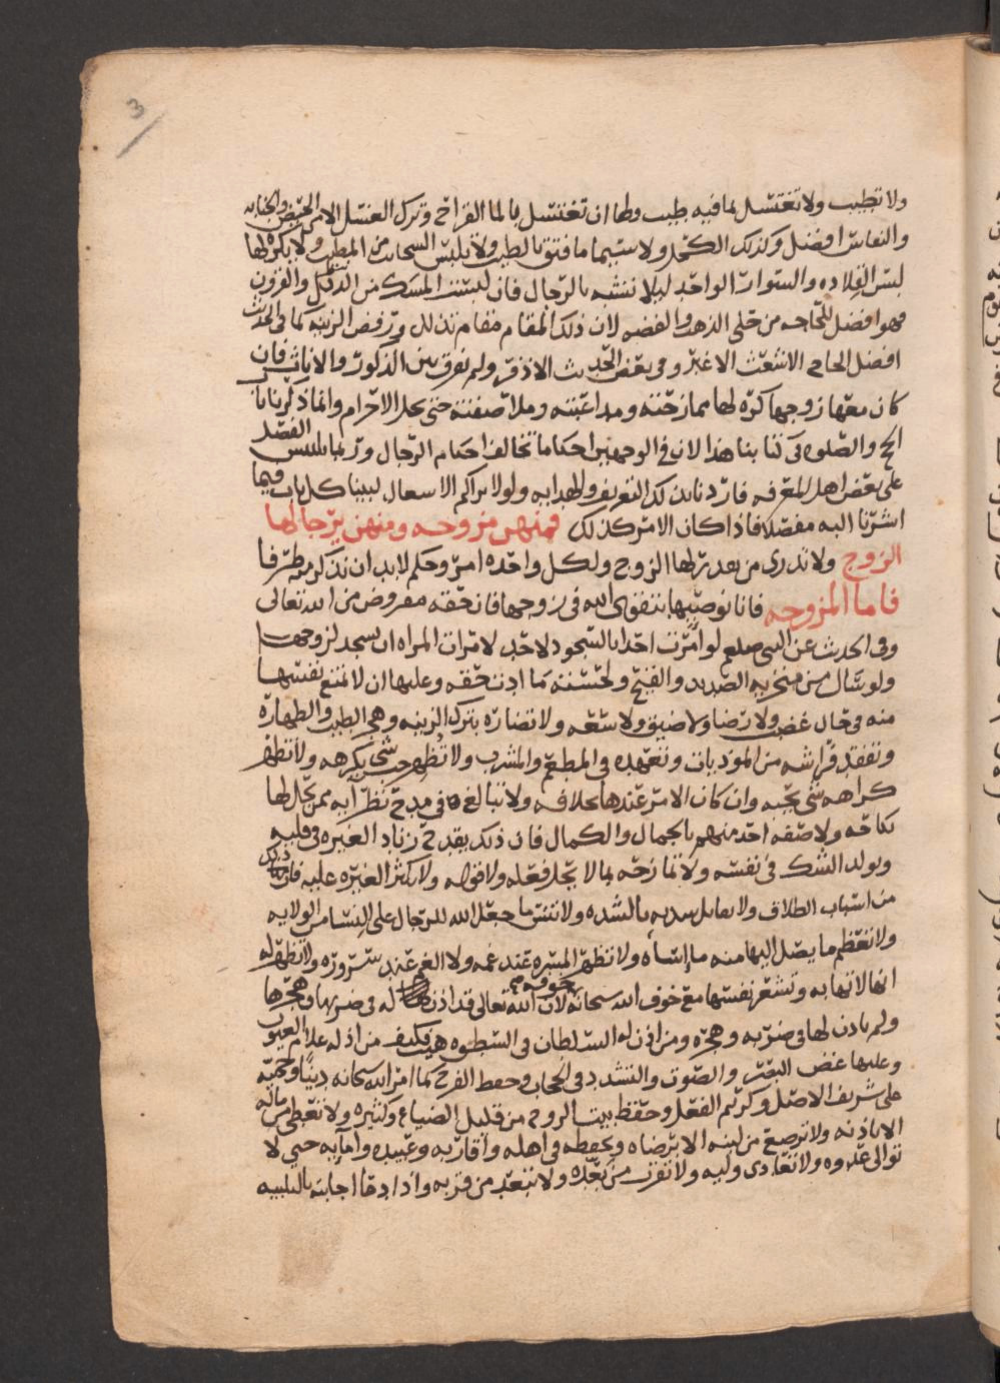 3
ولا تطيب ولا تغتسل بما فيه طيب ولها ان تغتسل بالما القراح وترك الغسل الا من الحيض والجنابه
والنفاس افضل وكذلك الكحل ولا سيما ما فتق بالطيب ولا تلبس السحاب من المطيب ولا يكره لها
لبس القلاده والسوار الواحد ليلا تتشبه بالرجال فان لبست المسك من الذبل والقرون
فهو افضل للحاجه من حلي الذهب والفضه لان ذلك المقام مقام تذلل ورفض الزينه كما في الحديث
افضل الحاج الاشعث الاغبر وفي بعض الحديث الاذفر ولم يفرق بين الذكور والاناث فان
كان معها زوجها كره لها ممازحته ومداعبته وملاصقته حتى يحل الاحرام وانما ذكرنا باب
الحج والصلوه في كتابنا هذا لان في الوجهين احكاما تخالف احكام الرجال وربما يلتبس الفصل
على بعض اهل المعرفه فاردنا بذلك التعريف والهدايه ولولا تراكم الاشغال لبينا كل باب فيما
اشرنا اليه مفصلا فاذا كان الامر كذلك فمنهن مزوجه ومنهن يرجا لها
الزوج ولا ندري من بعد يرلها الزوج ولكل واحده امر وحكم لا بد ان نذكر منه طرفا
فاما المزوجه فانا نوصيها بتقوى الله في زوجها فان حقه مفروض من الله تعالى
وفي الحديث عن النبي صلعم لو امرت احدا بالسجود لاحد لامرات المراه ان يسجد لزوجها
ولو سال من منخريه الصديد والقيح ولحسته ما ادت حقه وعليها ان لا تمنع نفسها
منه في حال غضب ولا رضا ولا ضيق ولا سعه ولا تضاره بترك الزينه وهي الطيب والطهاره
وتفقد فراشه من الموذيات وتعهده في المطعم والمشرب ولا تظهر حب شي يكرهه ولا تظهر
كراهه شي يحبه وان كان الامر عندها بخلافه ولا تبالغ في مدح نظرآيه ممن يحل لها
نكاحه ولا صفه احد منهم بالجمال والكمال فان ذلك يقدح زناد الغيره في قلبه
ويولد الشك في نفسه ولا تمازحه بما لا يحل فعله ولا قوله ولا تكثر الغيره عليه فان ذلك
من اسباب الطلاق ولا تقابل يديه بالشده ولا تنس ما جعل الله للرجال على النسا من الولايه
ولا تعظم ما يصل اليها منه ما اساه ولا تظهر المسره عند غمه ولا الغم عند سروره ولا تظهر له
انها لا تهابه وتشعر نفسها مع خوف الله سبحانه خوفه لان الله تعالى قد اذن له في ضربها وهجرها
ولم ياذن لها في ضربه وهجره ومن اذن له السلطان في السطوه هيب فكيف من اذن له علام الغيوب
وعليها غض البصر والصوت والتشدد في الحجاب وحفظ الفرج كما امر الله سبحانه دينا وحميه
على شريف الاصل وكريم الفعل وحفظ بيت الزوج من قليل الضياع وكثيره ولا تعطي من ماله
الا باذنه ولا ترضع من لبنه الا برضاه وتحفظه في اهله واقاربه وعبيده وامآيه حتى لا
توالي عدوه ولا تعادي وليه ولا تقرب من بعده ولا تبعد من قربه واذا دعا اجابته بالتلبيه